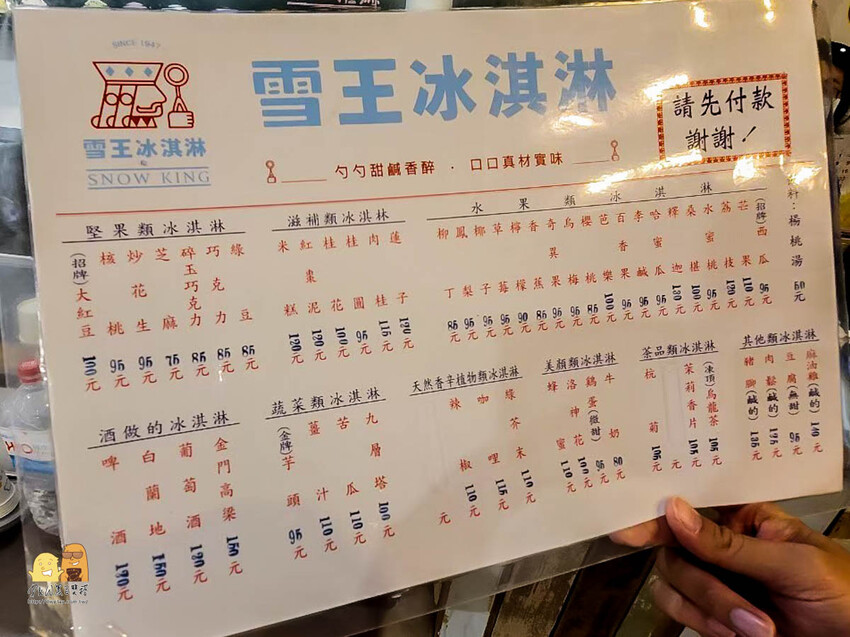 SINCE 1947
雪王冰淇淋
SNOW KING
雪王冰淇淋
勺勺甜鹹香醉 · 口口真材實味
請先付款
謝謝！
堅果類冰淇淋
(招牌)大紅豆 100元
核桃 95元
炒花生 95元
芝麻 75元
碎玉巧克力 85元
巧克力 85元
綠豆 85元
滋補類冰淇淋
米糕 120元
紅棗泥 120元
桂花 100元
桂圓 95元
肉桂 115元
蓮子 120元
水果類冰淇淋
柳丁 85元
鳳梨 95元
椰子 95元
草莓 95元
檸檬 90元
香蕉 85元
奇異果 95元
烏梅 95元
櫻桃 85元
芭樂 100元
百香果 95元
李鹹 95元
哈蜜瓜 95元
釋迦 130元
桑椹 100元
水蜜桃 95元
荔枝 120元
芒果 110元
(招牌)西瓜 95元
楊桃湯 50元
酒做的冰淇淋
啤酒 120元
白蘭地 150元
葡萄酒 120元
金門高粱 150元
蔬菜類冰淇淋
(金牌)芋頭 95元
薑汁 110元
苦瓜 110元
九層塔 100元
天然香辛植物類冰淇淋
元
辣椒 110元
咖哩 115元
綠芥末 110元
美顏類冰淇淋
蜂蜜 110元
洛神花 100元
雞蛋(微甜) 95元
牛奶 80元
茶品類冰淇淋
杭菊 105元
元
茉莉香片 105元
(凍頂)烏龍茶 105元
其他類冰淇淋
豬腳(鹹的) 135元
肉鬆(鹹的) 125元
豆腐(無甜) 95元
麻油雞(鹹的) 140元